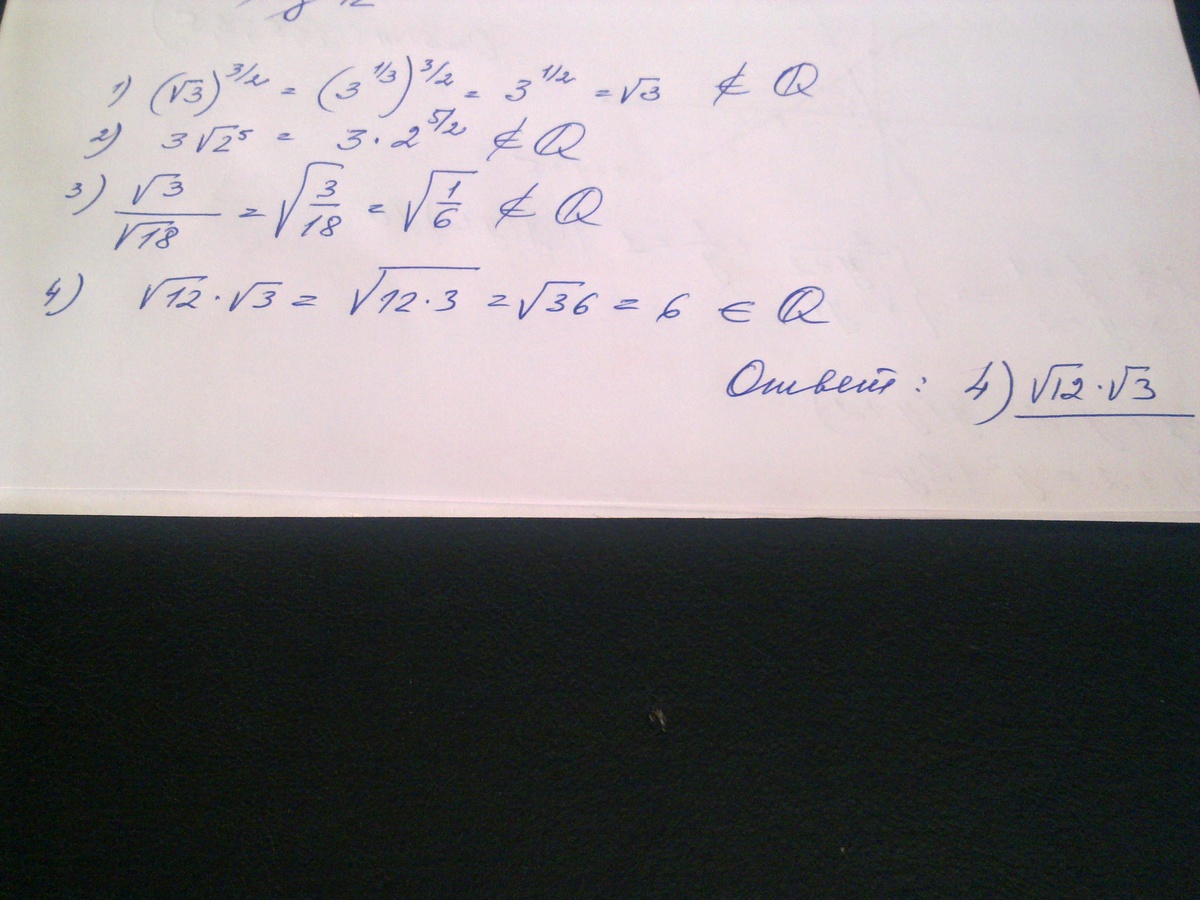 1) (√3)^{3/2} = (3^{1/3})^{3/2} = 3^{1/2} = √3 ∉ ℚ
2) 3√2⁵ = 3 · 2^{5/2} ∉ ℚ
3) √3/√18 = √(3/18) = √(1/6) ∉ ℚ
4) √12 · √3 = √(12 · 3) = √36 = 6 ∈ ℚ
Ответ: 4) √12 · √3